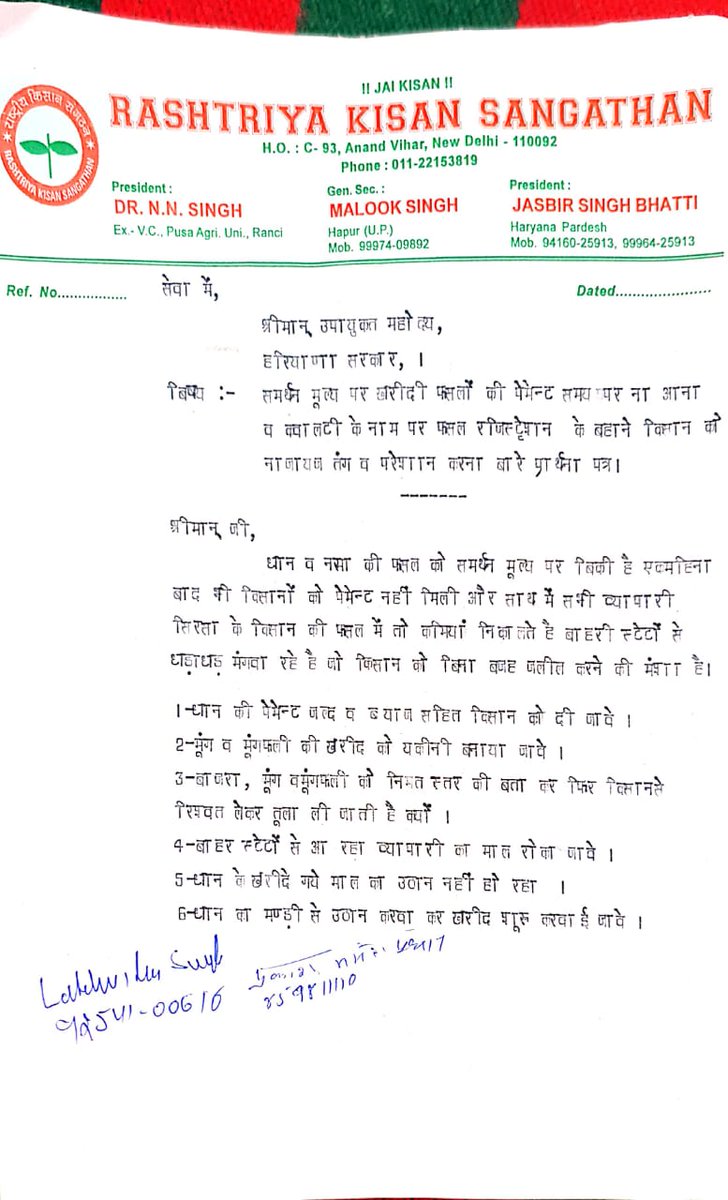 !! JAI KISAN !!
RASHTRIYA KISAN SANGATHAN
H.O. : C- 93, Anand Vihar, New Delhi - 110092
Phone : 011-22153819
राष्ट्रीय किसान संगठन
RASHTRIYA KISAN SANGATHAN
President :
DR. N.N. SINGH
Ex.- V.C., Pusa Agri. Uni., Ranci
Gen. Sec. :
MALOOK SINGH
Hapur (U.P.)
Mob. 99974-09892
President :
JASBIR SINGH BHATTI
Haryana Pardesh
Mob. 94160-25913, 99964-25913
Ref. No................. Dated......................
सेवा में,
श्रीमान् उपायुक्त महोदय,
हरियाणा सरकार, ।
बिषय :- समर्थन मूल्य पर खरीदी फसलों की पेमेन्ट समय पर ना आना
व क्वालटी के नाम पर फसल रजिस्ट्रेशन के बहाने किसान को
नाजायज तंग व परेशान करना बारे प्रार्थना पत्र।
-------
श्रीमान् जी,
धान व नरमा की फसल को समर्थन मूल्य पर बिकी है एकमहिना
बाद भी किसानों को पेमेन्ट नहीं मिली और साथ में सभी व्यापारी
सिरसा के किसान की फसल में तो कमियां निकालते है बाहरी स्टेटों से
धड़ाधड़ मंगवा रहे है जो किसान को बिना बजह जलील करने की मंशा है।
1-धान की पेमेन्ट जल्द व ब्याज सहित किसान को दी जावे ।
2-मूंग व मूंगफली की खरीद को यकीनी बनाया जावे ।
3-बाजरा, मूंग वमूंगफली को निमत स्तर की बता कर फिर किसानसे
रिश्वत लेकर तूला ली जाती है क्यों ।
4-बाहर स्टेटों से आ रहा व्यापारी का माल रोका जावे ।
5-धान के खरीदे गये माल का उठान नहीं हो रहा ।
6-धान का मण्ड़ी से उठान करवा कर खरीद शुरू करवाई जावे ।
Singh
92541-00616